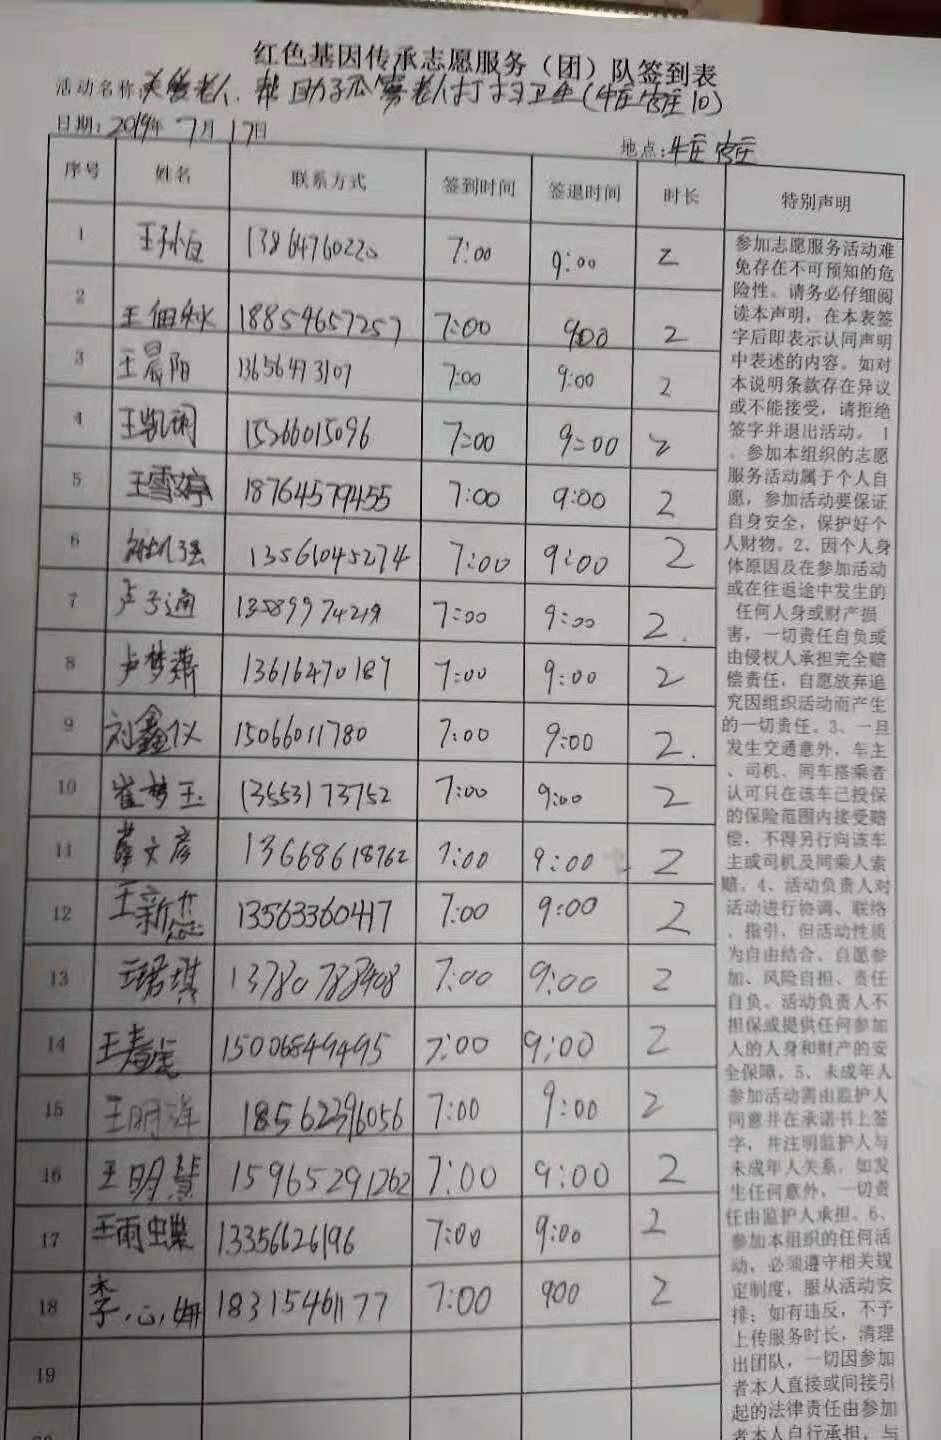 红色基因传承志愿服务（团）队签到表
活动名称：关爱老人、帮助孤寡老人打扫卫生（牛庄 10）
日期：2019年 7月 17日
地点：牛庄
序号 姓名 联系方式 签到时间 签退时间 时长 特别声明
1 13864760220 7:00 9:00 2
2 王佃秋 18854657257 7:00 9:00 2
3 王晨阳 13656473107 7:00 9:00 2
4 王凯闲 15266015096 7:00 9:00 2
5 王雪婷 18764579455 7:00 9:00 2
6 13561045274 7:00 9:00 2
7 卢子通 7:00 9:00 2.
8 卢梦萧 13616470187 7:00 9:00 2
9 刘鑫仪 15066011780 7:00 9:00 2.
10 崔梦玉 13553173752 7:00 9:00 2
11 薛文彦 13668618762 7:00 9:00 2
12 王新 13563360417 7:00 9:00 2
13 7:00 9:00 2
14 15006849495 7:00 9:00 2
15 王明洋 18562396056 7:00 9:00 2
16 王明慧 15965291262 7:00 9:00 2
17 王雨蝶 13356626196 7:00 9:00 2
18 李心妍 18315461177 7:00 900 2
19
参加志愿服务活动难
免存在不可预知的危
险性。请务必仔细阅
读本声明，在本表签
字后即表示认同声明
中表述的内容。如对
本说明条款存在异议
或不能接受，请拒绝
签字并退出活动。1
、参加本组织的志愿
服务活动属于个人自
愿，参加活动要保证
自身安全，保护好个
人财物。2、因个人身
体原因及在参加活动
或在往返途中发生的
任何人身或财产损
害，一切责任自负或
由侵权人承担完全赔
偿责任，自愿放弃追
究因组织活动而产生
的一切责任。3、一旦
发生交通意外，车主
、司机、同车搭乘者
认可只在该车已投保
的保险范围内接受赔
偿，不得另行向该车
主或司机及同乘人索
赔。4、活动负责人对
活动进行协调、联络
、指引，但活动性质
为自由结合、自愿参
加、风险自担、责任
自负。活动负责人不
担保或提供任何参加
人的人身和财产的安
全保障。5、未成年人
参加活动需由监护人
同意并在承诺书上签
字，并注明监护人与
未成年人关系，如发
生任何意外，一切责
任由监护人承担。6、
参加本组织的任何活
动，必须遵守相关规
定制度，服从活动安
排；如有违反，不予
上传服务时长，清理
出团队，一切因参加
者本人直接或间接引
起的法律责任由参加
者本人自行承担，与